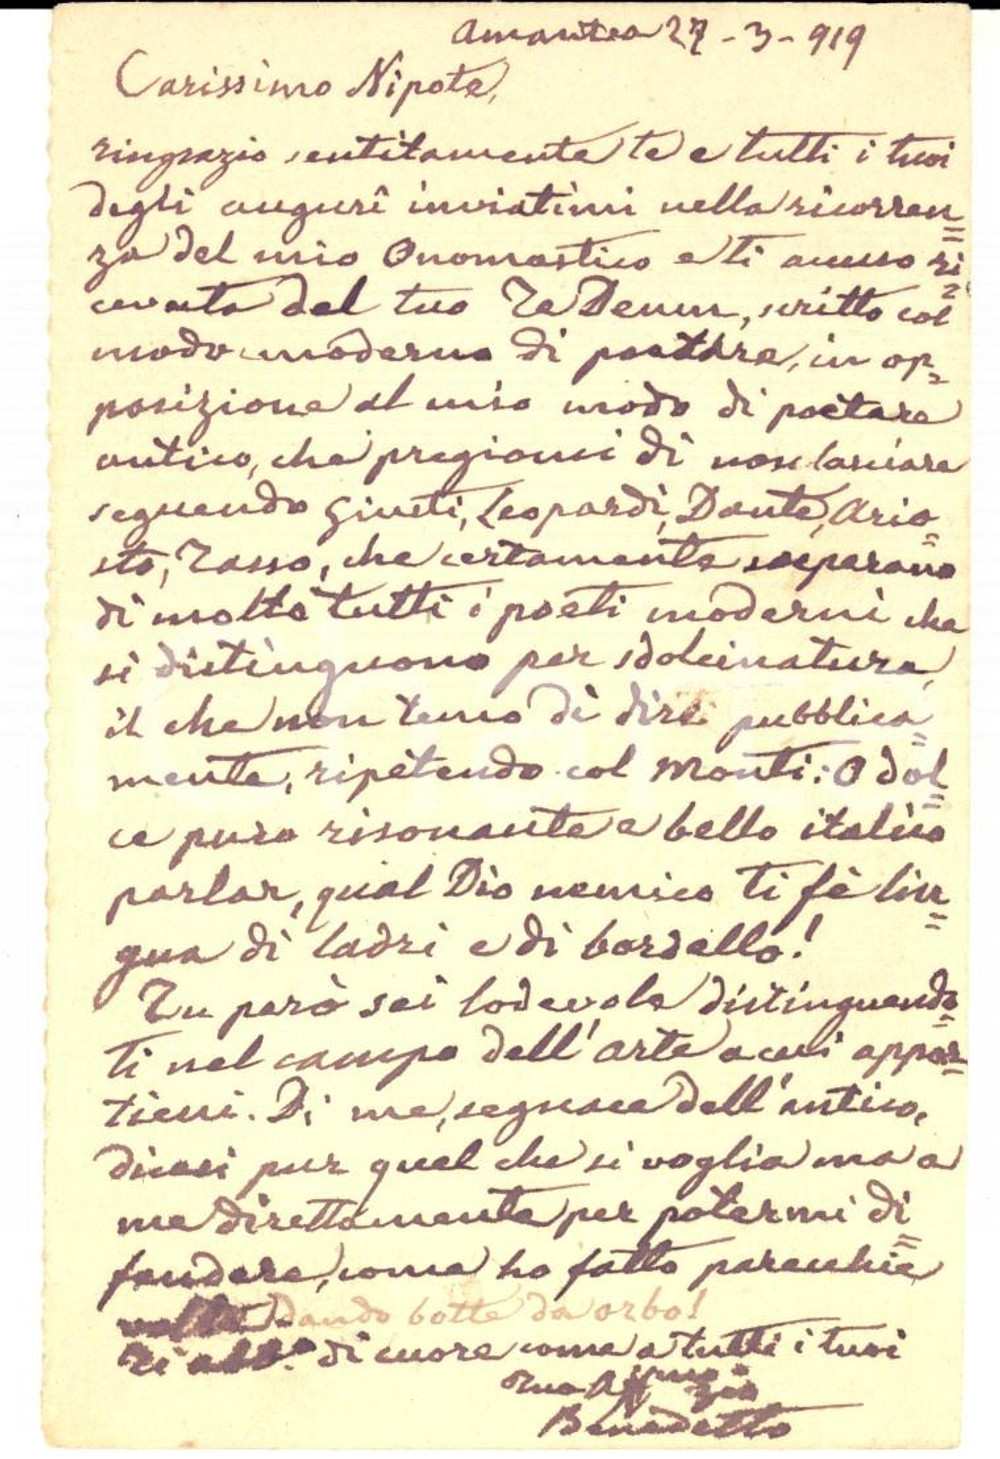 Amantea 27-3-919
Carissimo Nipote,
ringrazio sentitamente te e tutti i tuoi
degli augurî inviatimi nella ricorren=
za del mio Onomastico e ti accuso ri=
cevuta del tuo Te Deum, scritto col
modo moderno di poetare, in op=
posizione al mio modo di poetare
antico, che pregiomi di non lasciare
seguendo Giusti, Leopardi, Dante, Ario=
sto, Tasso, che certamente superano
di molto tutti i poeti moderni che
si distinguono per sdolcinatura,
il che non temo di dire pubblica=
mente, ripetendo col Monti: O dol=
ce puro risonante e bello italico
parlar, qual Dio nemico ti fè lin=
gua di ladri e di bordello!
Tu però sei lodevole distinguendo=
ti nel campo dell'arte a cui appar=
tieni. Di me, seguace dell'antico,
dicasi pur quel che si voglia ma a
me direttamente per potermi di=
fendere, come ho fatto parecchie
volte dando botte da orbo!
Ti abb.º di cuore come a tutti i tuoi
Tuo Aff.mo zio
Benedetto